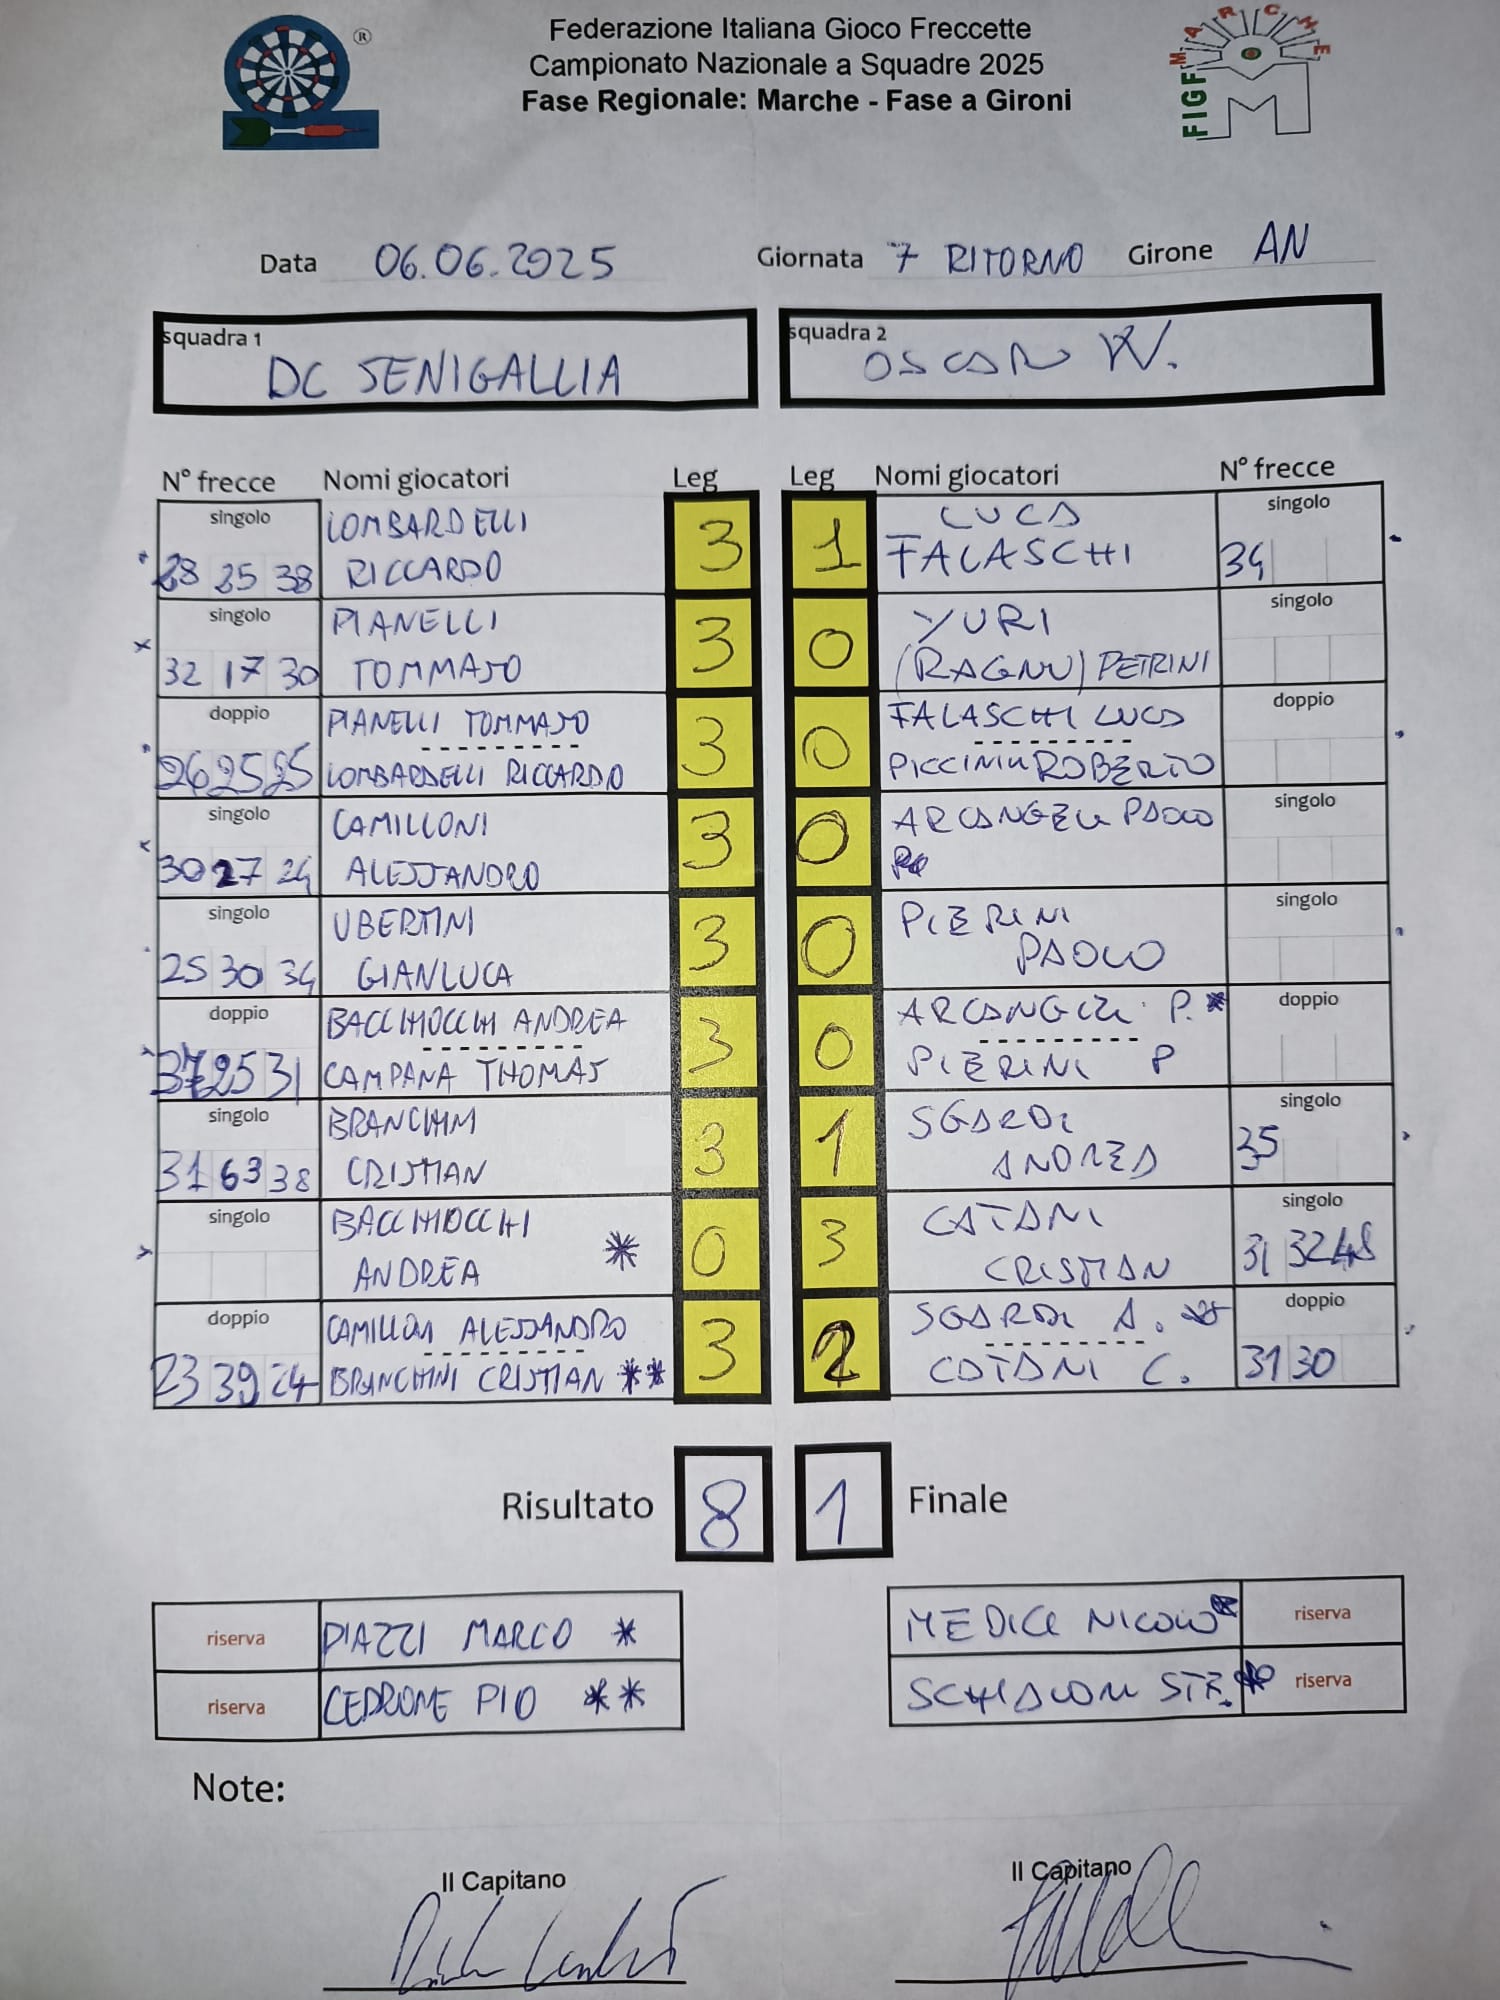 Federazione Italiana Gioco Freccette
Campionato Nazionale a Squadre 2025
Fase Regionale: Marche - Fase a Gironi
®
MARCHE
FIGF
M
Data 06.06.2025 Giornata 7 RITORNO Girone AN
squadra 1
DC SENIGALLIA
squadra 2
OSCAR W.
N° frecce Nomi giocatori Leg Leg Nomi giocatori N° frecce
singolo LOMBARDELLI 3 1 LUCA singolo
28 25 38 RICCARDO FALASCHI 34
singolo PIANELLI 3 0 YURI singolo
32 17 30 TOMMASO (RAGNO) PETRINI
doppio PIANELLI TOMMASO 3 0 FALASCHI LUCA doppio
26 25 25 LOMBARDELLI RICCARDO PICCININI ROBERTO
singolo CAMILLONI 3 0 ARCANGELI PAOLO singolo
30 27 24 ALESSANDRO
singolo UBERTINI 3 0 PIERINI singolo
25 30 34 GIANLUCA PAOLO
doppio BACCHIOCCHI ANDREA 3 0 ARCANGELI P. * doppio
25 31 CAMPANA THOMAS PIERINI P
singolo BRANCHINI 3 1 SGARDI singolo
31 63 38 CRISTIAN ANDREA 35
singolo BACCHIOCCHI * 0 3 CATANI singolo
ANDREA CRISTIAN 31 32 48
doppio CAMILLONI ALESSANDRO 3 2 SGARDI A. ** doppio
23 39 24 BRANCHINI CRISTIAN ** CATANI C. 31 30
Risultato 8 1 Finale
riserva PIAZZI MARCO * MEDICI NICOLO * riserva
riserva CEDRONE PIO ** SCHIAVONI STE. ** riserva
Note:
Il Capitano Il Capitano